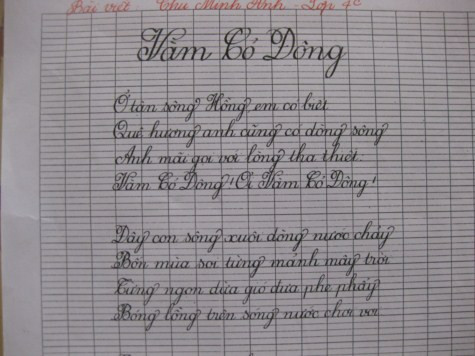 Bài viết Chu Minh Anh - Lớp 4c
Vàm Cỏ Đông
Ở tận sông Hồng em có biết
Quê hương anh cũng có dòng sông
Anh mãi gọi với lòng tha thiết:
Vàm Cỏ Đông! Ơi Vàm Cỏ Đông!
Đây con sông xuôi dòng nước chảy
Bốn mùa soi từng mảnh mây trời
Từng ngọn dừa gió đưa phe phẩy
Bóng lồng trên sóng nước chơi vơi